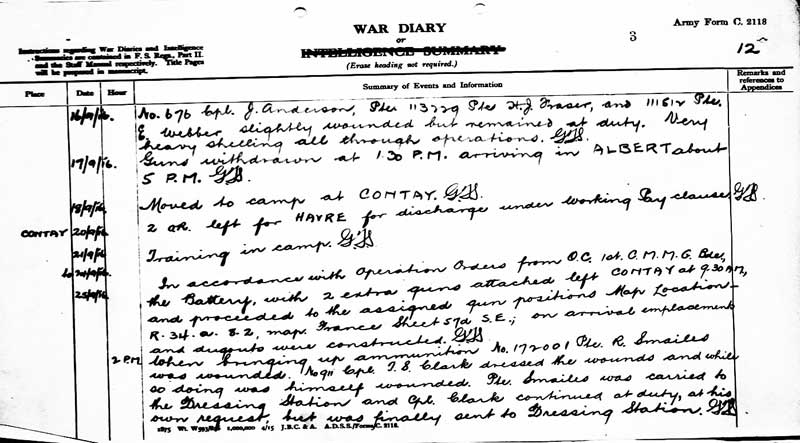 WAR DIARY
or
INTELLIGENCE SUMMARY
(Erase heading not required.)
Army Form C. 2118
3
12
Instructions regarding War Diaries and Intelligence
Summaries are contained in F. S. Regs., Part II.
and the Staff Manual respectively. Title Pages
will be prepared in manuscript.
Place
Date
Hour
Summary of Events and Information
Remarks and
references to
Appendices
16/9/16. No. 676 Cpl. J. Anderson, Ptes 113229 Pte H.J. Fraser, and 111612 Pte.
E. Webber slightly wounded but remained at duty. Very
heavy shelling all through operations.
17/9/16. Guns withdrawn at 1.30 P.M. arriving in ALBERT about
5 P.M.
18/9/16 Moved to camp at CONTAY.
CONTAY 20/9/16 2 OR. left for HAVRE for discharge under Working Pay clause
21/9/16 Training in camp.
to 24/9/16
25/9/16. In accordance with Operation Orders from O.C. 1st. C.M.M.G. Bde,
the Battery, with 2 extra guns attached left CONTAY at 9.30 AM,
and proceeded to the assigned gun positions Map Location-
R.34.a.8.2, map. France Sheet 57d S.E.; on arrival emplacements
and dugouts were constructed.
2 P.M. When bringing up ammunition No. 172001 Pte. R. Smailes
was wounded. No 911 Cpl. T. S. Clark dressed the wounds and while
so doing was himself wounded. Pte. Smailes was carried to
the Dressing Station and Cpl. Clark continued at duty, at his
own request, but was finally sent to Dressing Station.
1,000,000 4/15 J.B.C. & A. A.D.S.S./Forms/C. 2118.